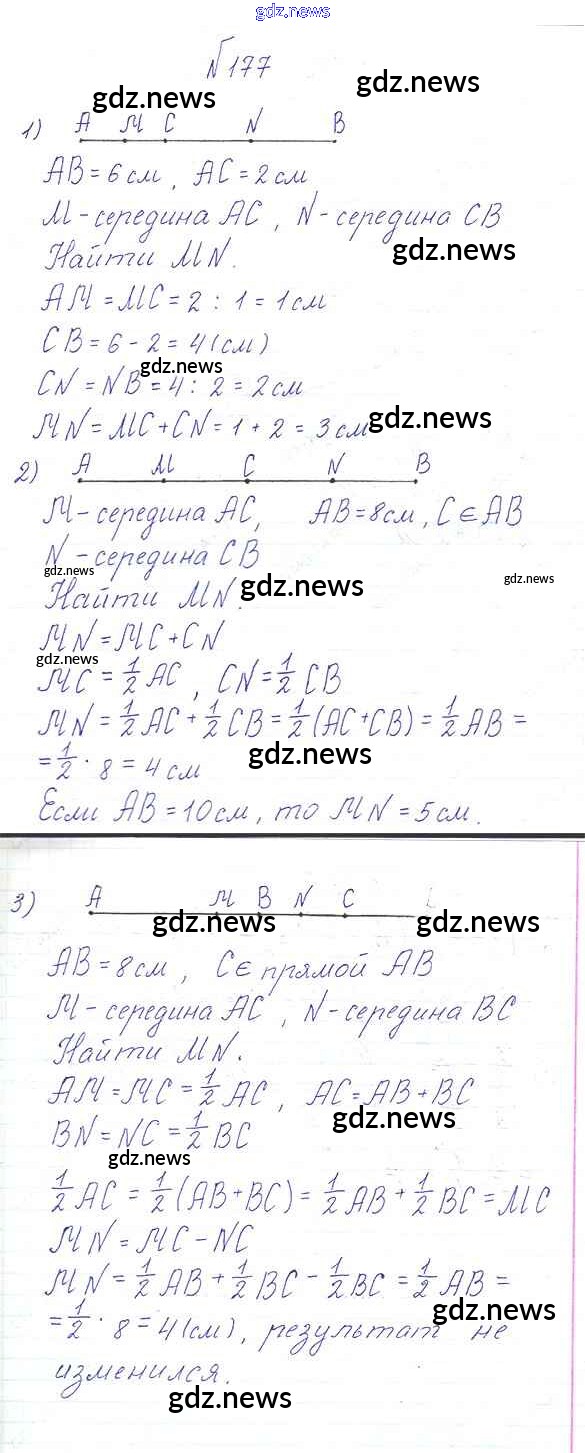 gdz.news
№177
gdz.news
gdz.news
1) A M C N B
AB = 6 см, AC = 2 см
M - середина AC, N - середина CB
Найти MN.
gdz.news
AM = MC = 2 : 1 = 1 см
CB = 6 - 2 = 4 (см)
gdz.news
CN = NB = 4 : 2 = 2 см
MN = MC + CN = 1 + 2 = 3 см
gdz.news
2) A M C N B
M - середина AC, AB = 8 см, C ∈ AB
N - середина CB
gdz.news
gdz.news
gdz.news
Найти MN.
MN = MC + CN
gdz.news
MC = 1/2 AC, CN = 1/2 CB
MN = 1/2 AC + 1/2 CB = 1/2 (AC + CB) = 1/2 AB =
gdz.news
= 1/2 · 8 = 4 см
Если AB = 10 см, то MN = 5 см.
3) A M B N C
gdz.news
gdz.news
AB = 8 см, C ∈ прямой AB
M - середина AC, N - середина BC
Найти MN.
AM = MC = 1/2 AC, AC = AB + BC
gdz.news
BN = NC = 1/2 BC
gdz.news
1/2 AC = 1/2 (AB + BC) = 1/2 AB + 1/2 BC = MC
MN = MC - NC
MN = 1/2 AB + 1/2 BC - 1/2 BC = 1/2 AB =
gdz.news
= 1/2 · 8 = 4 (см), результат не
изменился.
gdz.news